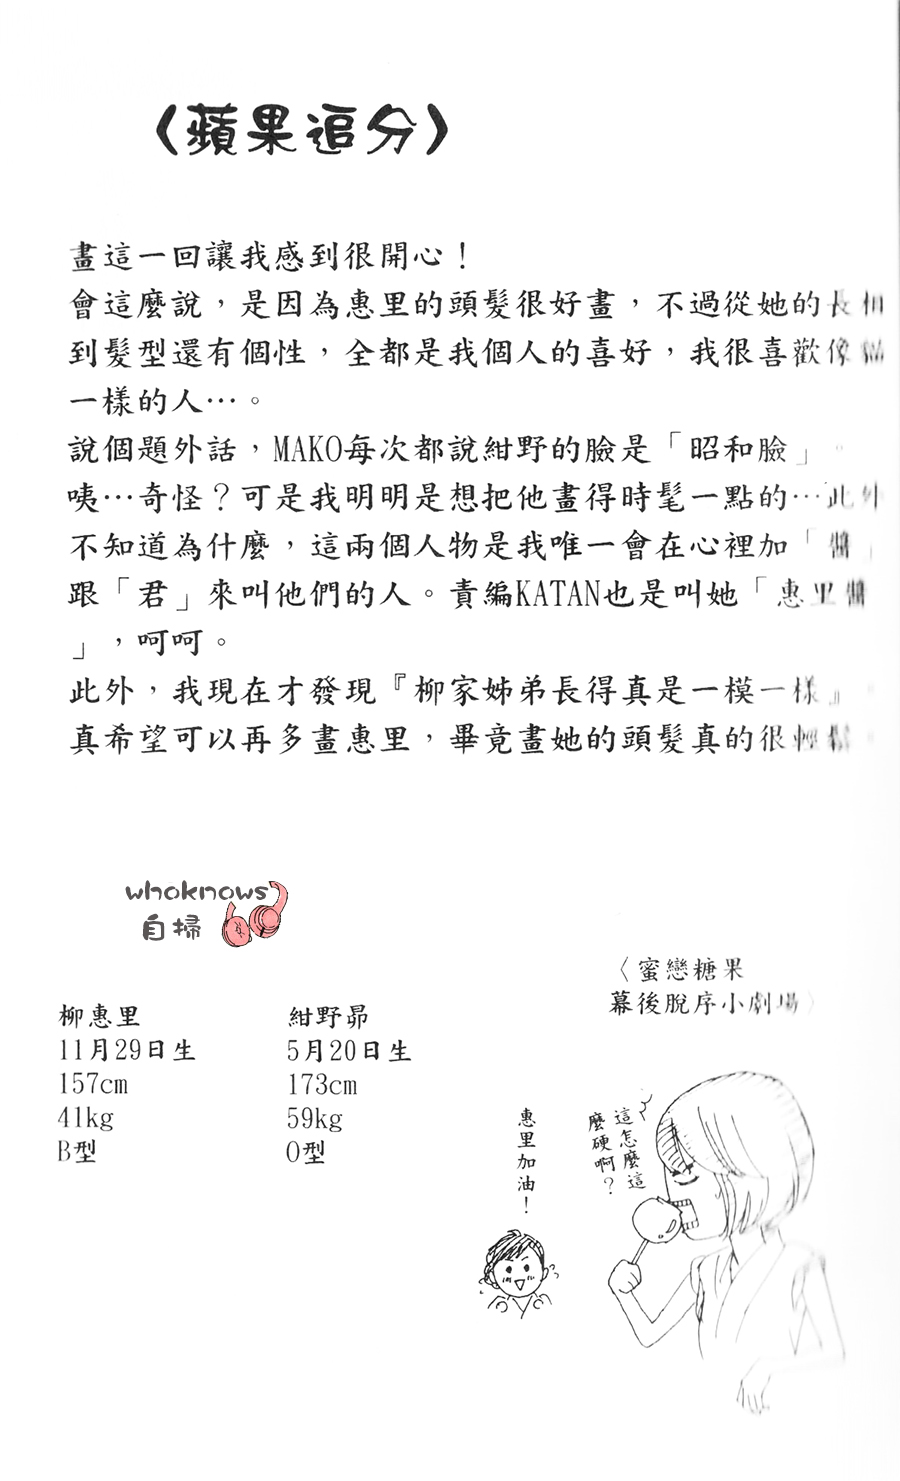 〈蘋果追分〉
畫這一回讓我感到很開心！
會這麼說，是因為惠里的頭髮很好畫，不過從她的長相
到髮型還有個性，全都是我個人的喜好，我很喜歡像貓
一樣的人…。
說個題外話，MAKO每次都說紺野的臉是「昭和臉」。
咦…奇怪？可是我明明是想把他畫得時髦一點的…此外
不知道為什麼，這兩個人物是我唯一會在心裡加「醬」
跟「君」來叫他們的人。責編KATAN也是叫她「惠里醬
」，呵呵。
此外，我現在才發現『柳家姊弟長得真是一模一樣』。
真希望可以再多畫惠里，畢竟畫她的頭髮真的很輕鬆。
whoknows
自掃
柳惠里
11月29日生
157cm
41kg
B型
紺野昴
5月20日生
173cm
59kg
O型
〈蜜戀糖果
幕後脫序小劇場〉
這怎麼這
麼硬啊？
惠里加油！